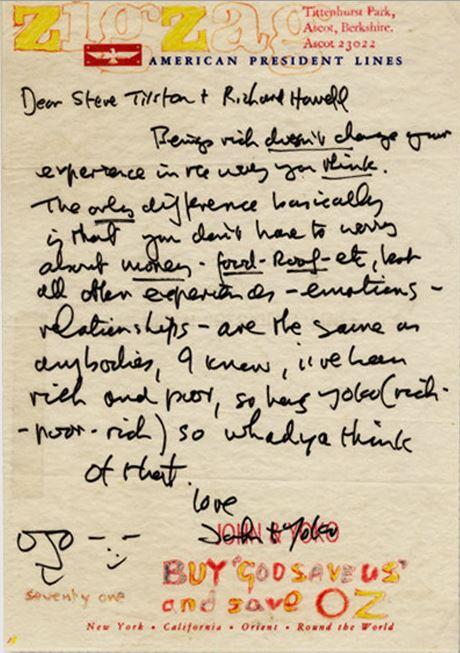 zigzag
Tittenhurst Park,
Ascot, Berkshire.
Ascot 23022
AMERICAN PRESIDENT LINES
Dear Steve Tilston + Richard Howell
Being rich doesn't change your
experience in the way you think.
The only difference basically
is that you don't have to worry
about money - food - Roof - etc, but
all other experiences - emotions -
relationships - are the same as
anybodies, I know, i've been
rich and poor, so has yoko (rich-
-poor-rich) so whadya think
of that.
love
John + Yoko
JOHN & YOKO
seventy one
BUY 'GOD SAVE US'
and save OZ
New York • California • Orient • Round the World